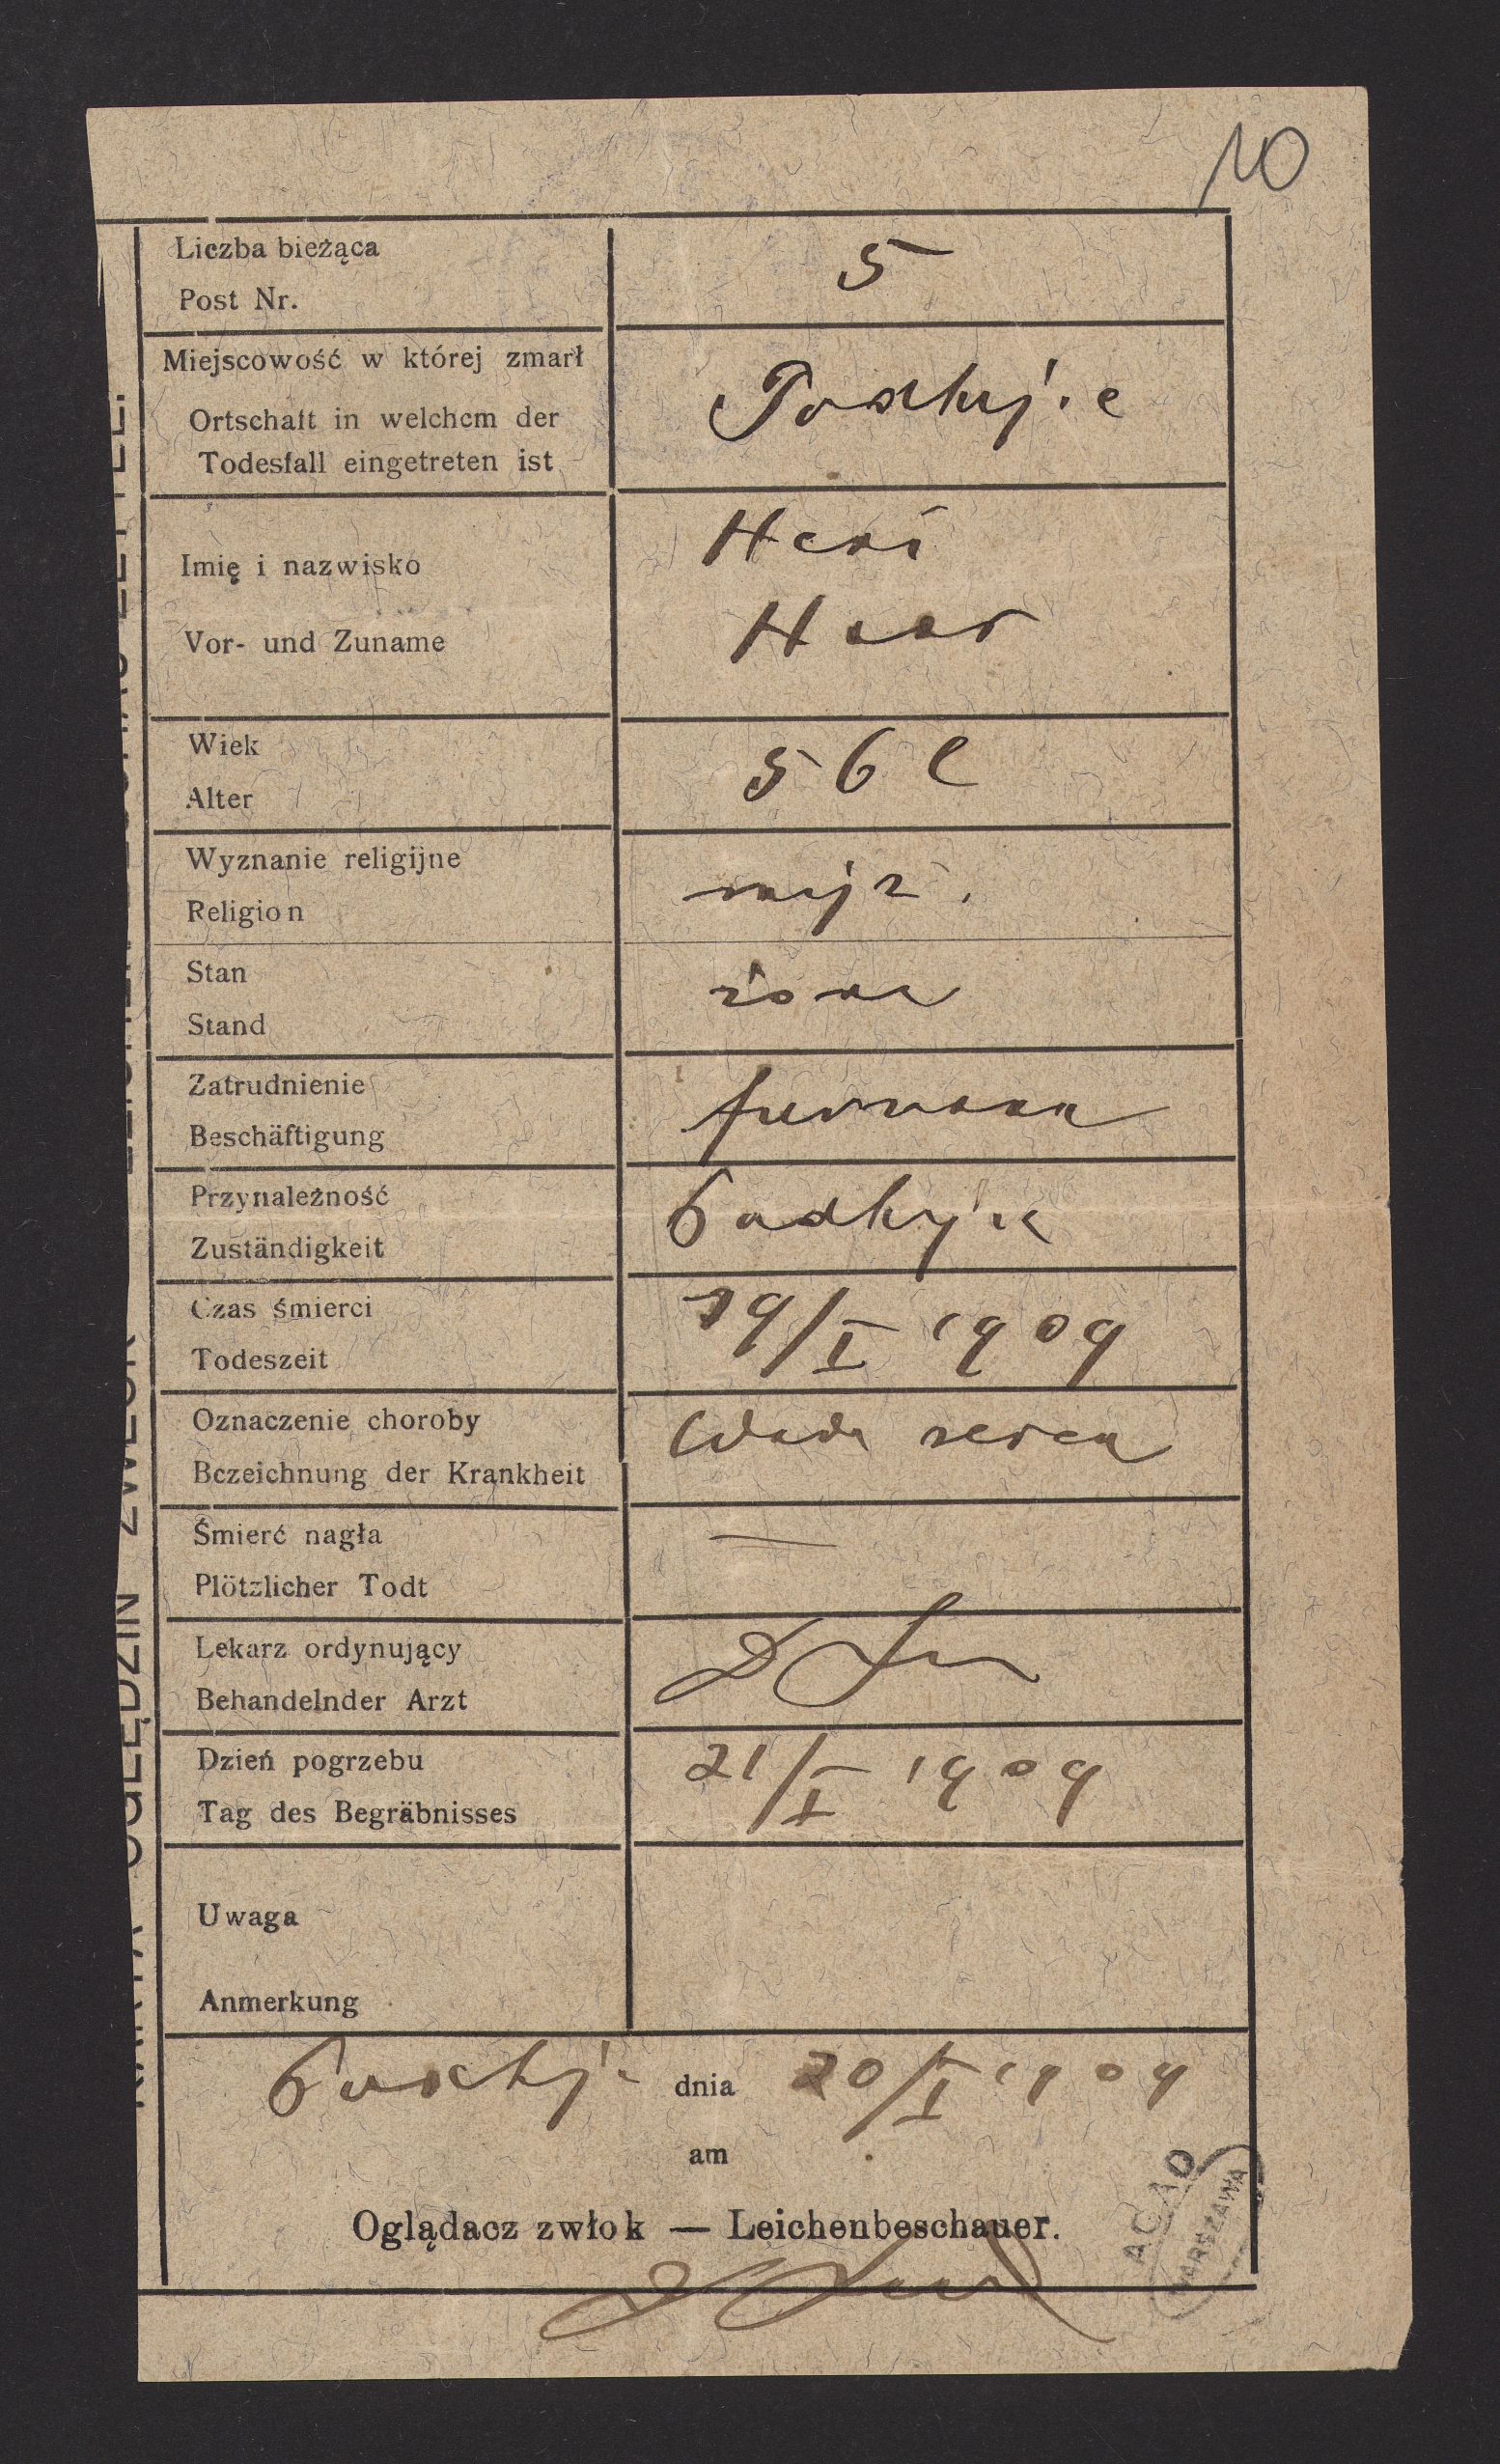 10
Liczba bieżąca
Post Nr.
5
Miejscowość w której zmarł
Ortschaft in welchem der
Todesfall eingetreten ist
Podhajce
Imię i nazwisko
Vor- und Zuname
Heni
Haar
Wiek
Alter
56 l
Wyznanie religijne
Religion
mojż.
Stan
Stand
żona
Zatrudnienie
Beschäftigung
furmana
Przynależność
Zuständigkeit
Podhajce
Czas śmierci
Todeszeit
19/I 1909
Oznaczenie choroby
Bezeichnung der Krankheit
Wada serca
Śmierć nagła
Plötzlicher Todt
—
Lekarz ordynujący
Behandelnder Arzt
Dzień pogrzebu
Tag des Begräbnisses
21/I 1909
Uwaga
Anmerkung
Podhajce dnia 20/I 1909
am
Oglądacz zwłok — Leichenbeschauer.
AGAD
WARSZAWA
KARTA OGLĘDZIN ZWŁOK